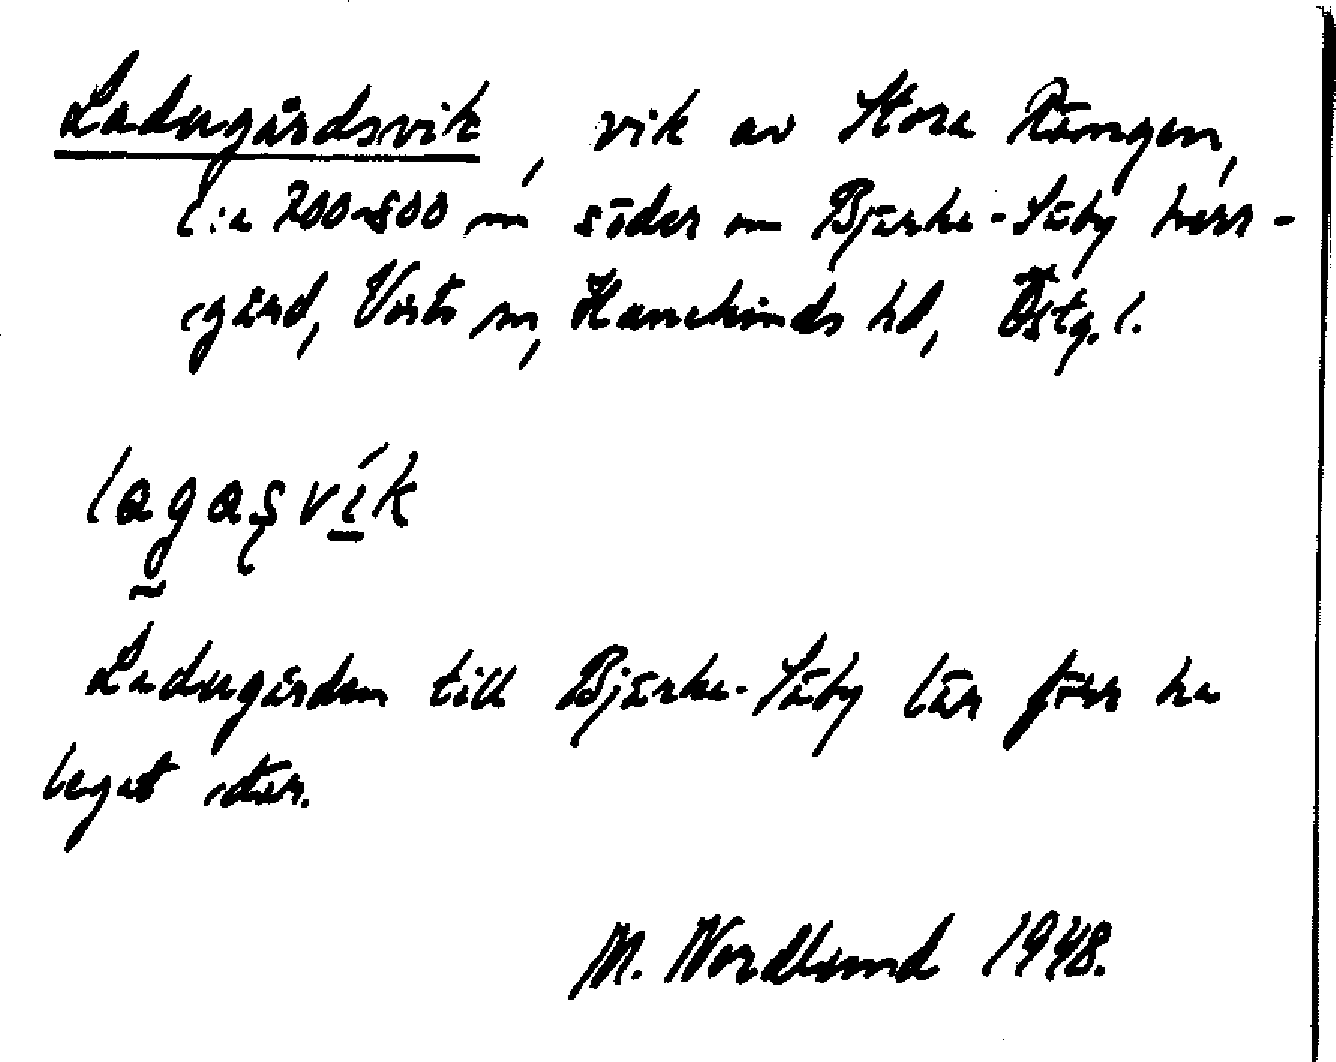 Ladugårdsvik, vik av Stora Rängen,
c:a 700-800 m söder om Bjärka-Säby herr-
gård, Vists sn, Hanekinds hd, Östg. l.
lagaşvík
Ladugården till Bjärka-Säby lär förr ha
legat där.
M. Nordlund 1948.